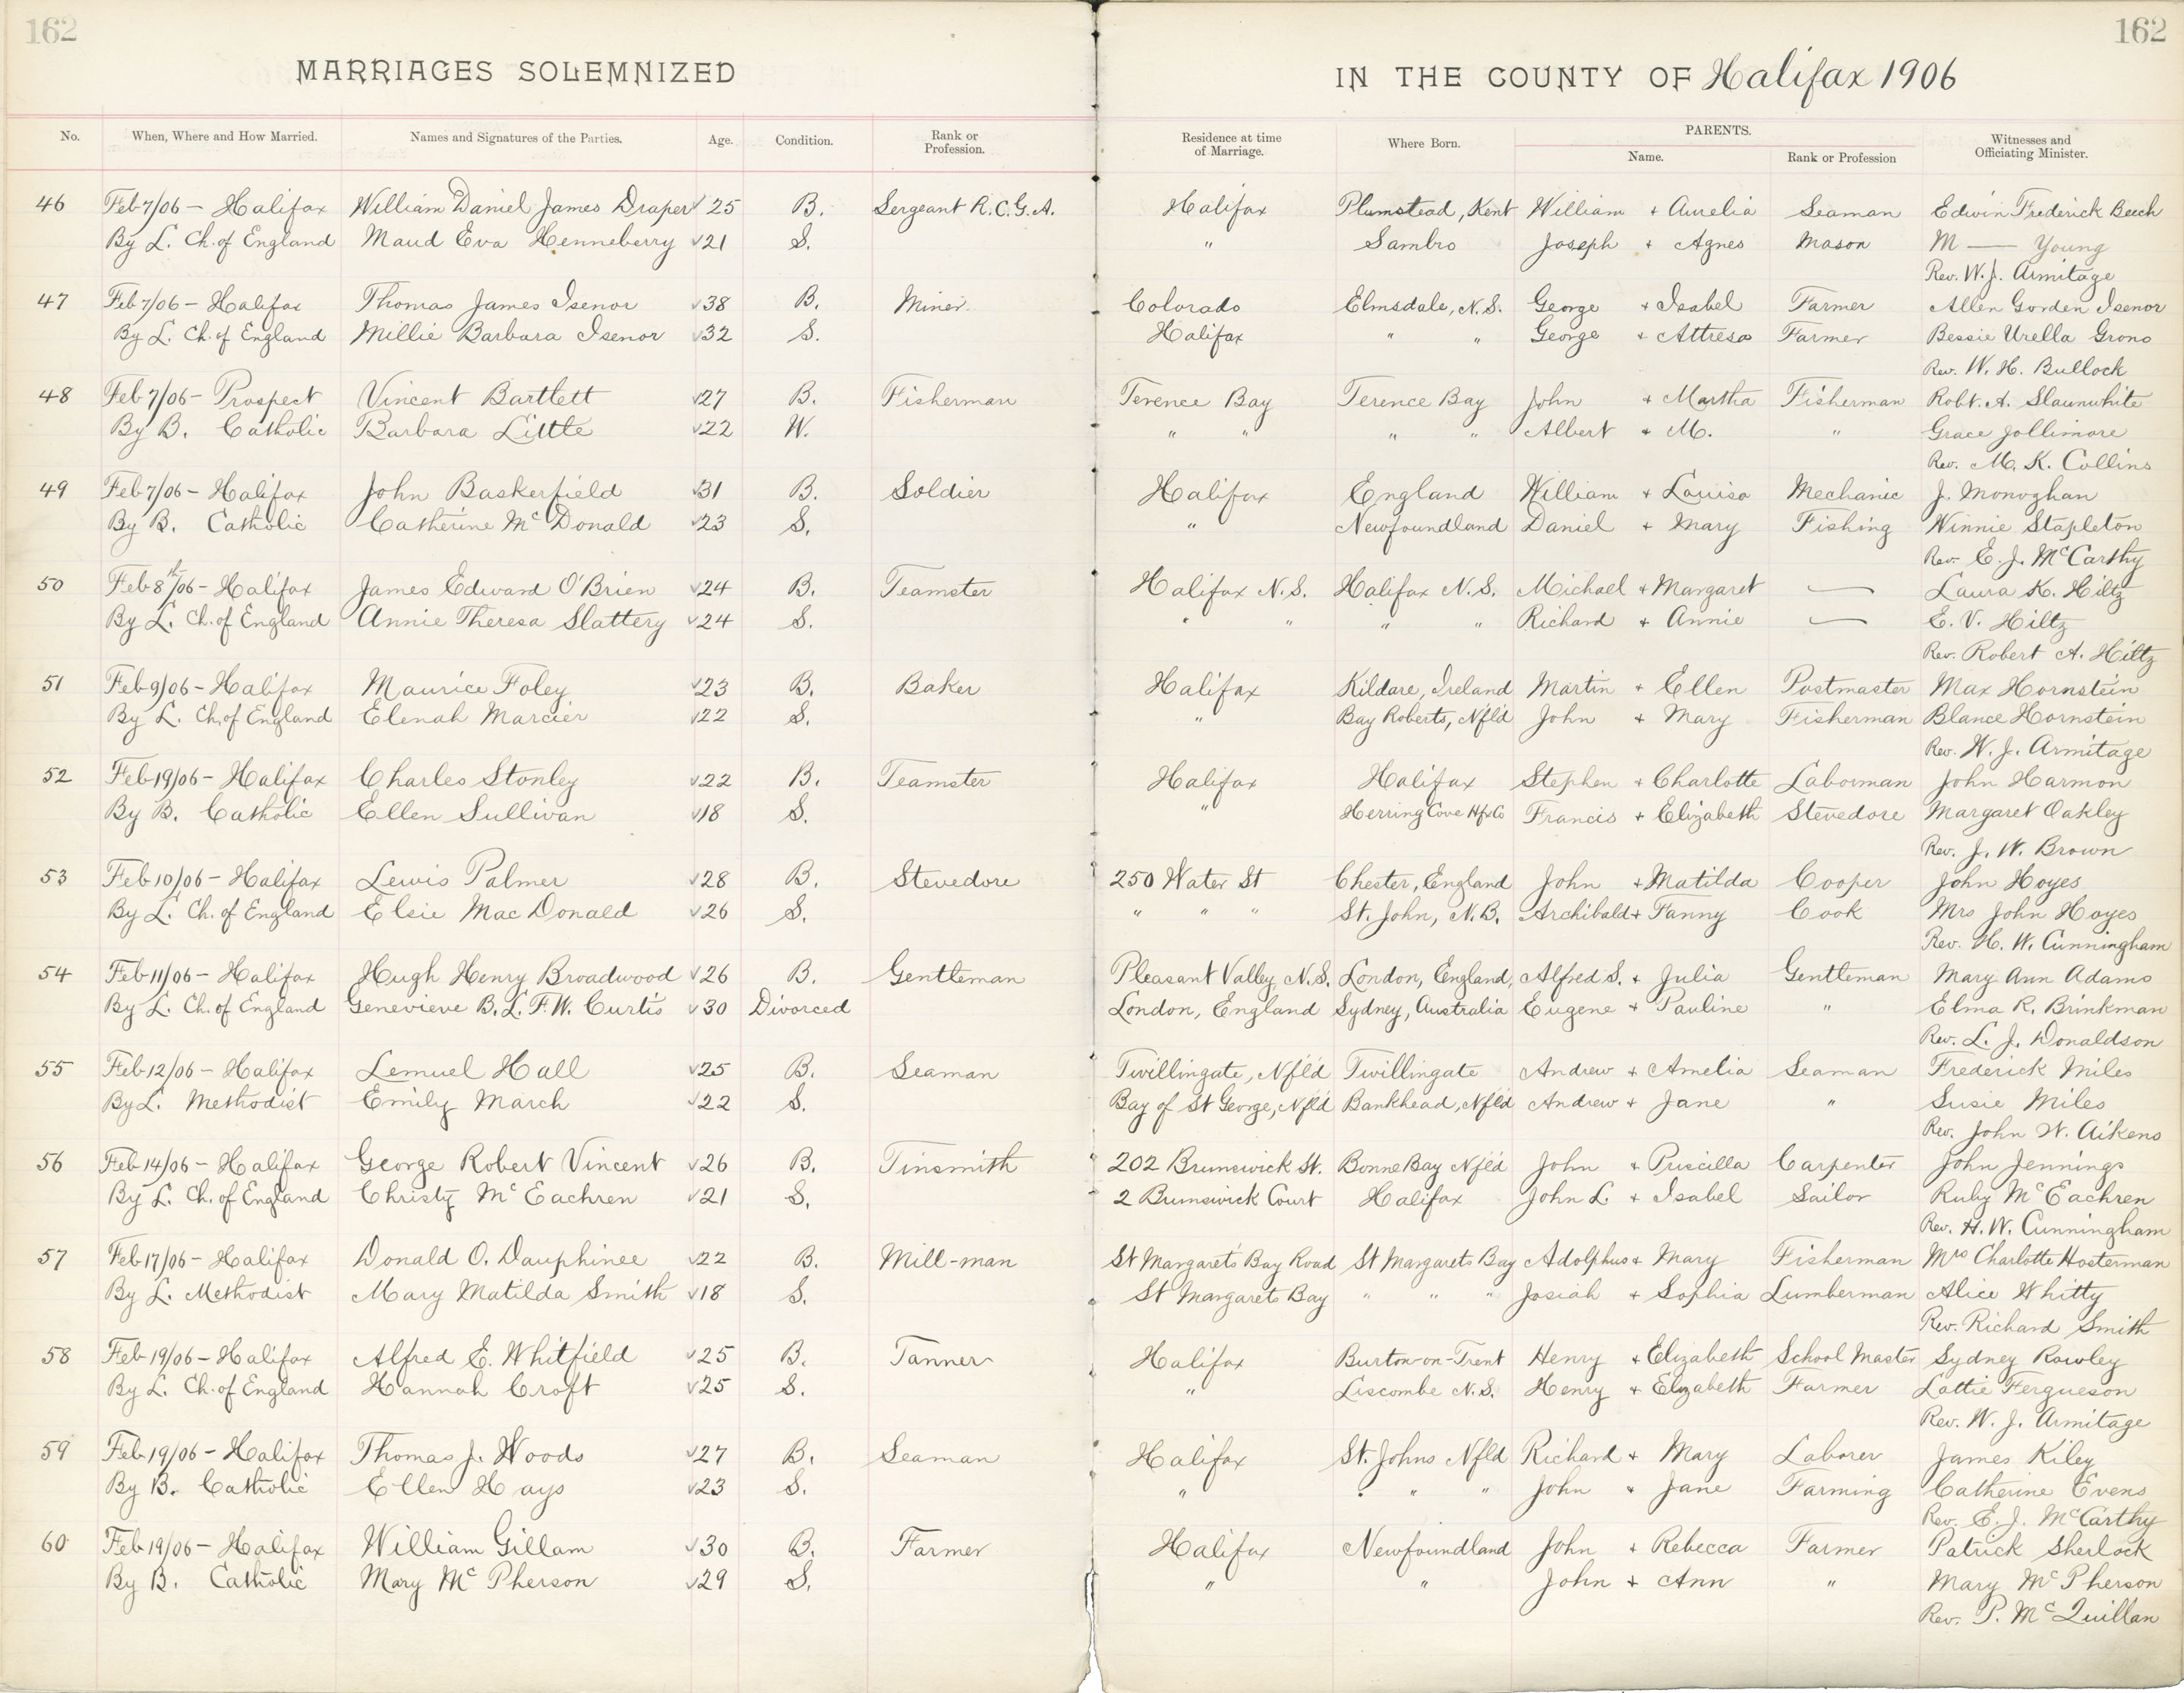 162
162
MARRIAGES SOLEMNIZED
IN THE COUNTY OF Halifax 1906
No. When, Where and How Married. Names and Signatures of the Parties. Age. Condition. Rank or Profession. Residence at time of Marriage. Where Born. PARENTS. Name. Rank or Profession Witnesses and Officiating Minister.
46 Feb 7/06 - Halifax William Daniel James Draper 25 B. Sergeant R.C.G.A. Halifax Plumstead, Kent William + Aurelia Seaman Edwin Frederick Beech
By L. Ch. of England Maud Eva Henneberry 21 S. " Sambro Joseph + Agnes Mason M — Young
Rev. W. J. Armitage
47 Feb 7/06 - Halifax Thomas James Isenor 38 B. Miner. Colorado Elmsdale, N.S. George + Isabel Farmer Allen Gorden Isenor
By L. Ch. of England Millie Barbara Isenor 32 S. Halifax " " George + Attresa Farmer Bessie Urella Grono
Rev. W. H. Bullock
48 Feb 7/06 - Prospect Vincent Bartlett 27 B. Fisherman Terence Bay Terence Bay John + Martha Fisherman Robt. A. Slaunwhite
By B. Catholic Barbara Little 22 W. " " " " Albert + M. " Grace Jollimore
Rev. M. K. Collins
49 Feb 7/06 - Halifax John Baskerfield 31 B. Soldier Halifax England William + Louisa Mechanic J. Monoghan
By B. Catholic Catherine McDonald 23 S. " Newfoundland Daniel + Mary Fishing Winnie Stapleton
Rev. E. J. McCarthy
50 Feb 8th/06 - Halifax James Edward O'Brien 24 B. Teamster Halifax N.S. Halifax N.S. Michael + Margaret — Laura K. Hiltz
By L. Ch. of England Annie Theresa Slattery 24 S. " " " " Richard + Annie — E. V. Hiltz
Rev. Robert A. Hiltz
51 Feb 9/06 - Halifax Maurice Foley 23 B. Baker Halifax Kildare, Ireland Martin + Ellen Postmaster Max Hornstein
By L. Ch. of England Elenah Marcier 22 S. " Bay Roberts, Nfl'd John + Mary Fisherman Blance Hornstein
Rev. W. J. Armitage
52 Feb 19/06 - Halifax Charles Stonley 22 B. Teamster Halifax Halifax Stephen + Charlotte Laborman John Harmon
By B. Catholic Ellen Sullivan 18 S. " Herring Cove Hfx Co Francis + Elizabeth Stevedore Margaret Oakley
Rev. J. W. Brown
53 Feb 10/06 - Halifax Lewis Palmer 28 B. Stevedore 250 Water St Chester, England John + Matilda Cooper John Hoyes
By L. Ch. of England Elsie MacDonald 26 S. " " " St. John, N.B. Archibald + Fanny Cook Mrs John Hoyes
Rev. H. W. Cunningham
54 Feb 11/06 - Halifax Hugh Henry Broadwood 26 B. Gentleman Pleasant Valley, N.S. London, England, Alfred S. + Julia Gentleman Mary Ann Adams
By L. Ch. of England Genevieve B. L. F. W. Curtis 30 Divorced London, England Sydney, Australia Eugene + Pauline " Elma R. Brinkman
Rev. L. J. Donaldson
55 Feb 12/06 - Halifax Lemuel Hall 25 B. Seaman Twillingate, Nfl'd Twillingate Andrew + Amelia Seaman Frederick Miles
By L. Methodist Emily March 22 S. Bay of St George, Nfl'd Bankhead, Nfl'd Andrew + Jane " Susie Miles
Rev. John W. Aikens
56 Feb 14/06 - Halifax George Robert Vincent 26 B. Tinsmith 202 Brunswick St. Bonne Bay Nfl'd John + Priscilla Carpenter John Jennings
By L. Ch. of England Christy McEachren 21 S. 2 Brunswick Court Halifax John L. + Isabel Sailor Ruby McEachren
Rev. H. W. Cunningham
57 Feb 17/06 - Halifax Donald O. Dauphinee 22 B. Mill-man St Margaret's Bay Road St Margarets Bay Adolphus + Mary Fisherman Mrs Charlotte Hosterman
By L. Methodist Mary Matilda Smith 18 S. St Margarets Bay " " " Josiah + Sophia Lumberman Alice Whitty
Rev. Richard Smith
58 Feb 19/06 - Halifax Alfred E. Whitfield 25 B. Tanner Halifax Burton-on-Trent Henry + Elizabeth School Master Sydney Rowley
By L. Ch. of England Hannah Croft 25 S. " Liscombe N.S. Henry + Elizabeth Farmer Lottie Fergueson
Rev. W. J. Armitage
59 Feb 19/06 - Halifax Thomas J. Woods 27 B. Seaman Halifax St. Johns Nfld Richard + Mary Laborer James Kiley
By B. Catholic Ellen Hays 23 S. " " " " John + Jane Farming Catherine Evens
Rev. E. J. McCarthy
60 Feb 19/06 - Halifax William Gillam 30 B. Farmer Halifax Newfoundland John + Rebecca Farmer Patrick Sherlock
By B. Catholic Mary McPherson 29 S. " " John + Ann " Mary McPherson
Rev. P. McQuillan